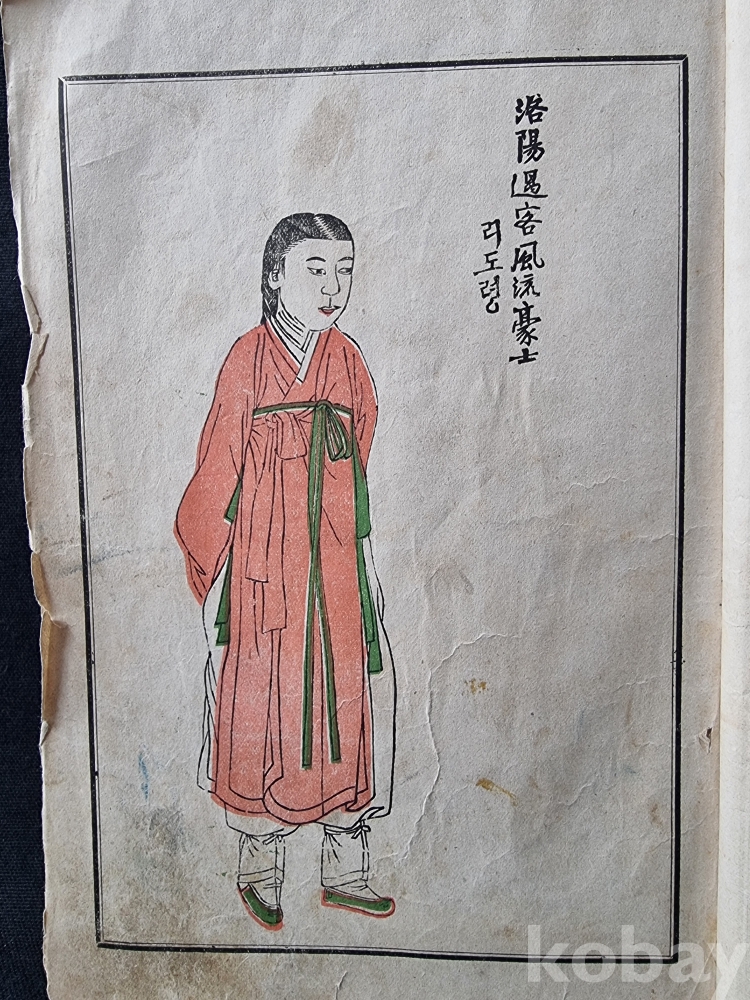 洛陽過客風流豪士
리도령
kobay